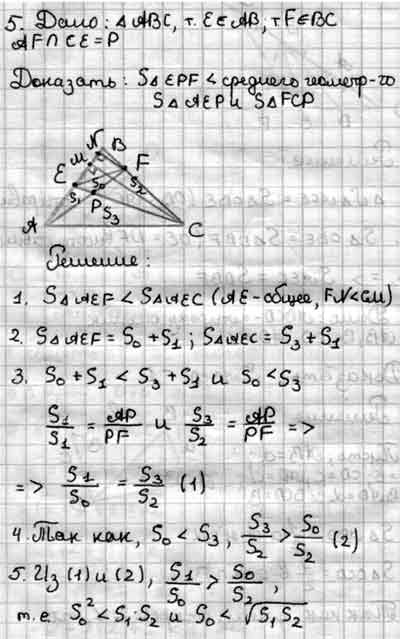 5. Дано: △ABC, т. E∈AB, т F∈BC
AF∩CE=P
Доказать: S△EPF < среднего геометр-го
S△AEP и S△FCP
N B
M F
E S₀ S₂
S₁ P S₃
A C
Решение:
1. S△AEF < S△AEC (AE-общее, FN<CM)
2. S△AEF = S₀+S₁; S△AEC = S₃+S₁
3. S₀+S₁ < S₃+S₁ и S₀<S₃
S₁/S₁ = AP/PF и S₃/S₂ = AP/PF =>
=> S₁/S₀ = S₃/S₂ (1)
4. Так как, S₀ < S₃, S₃/S₂ > S₀/S₂ (2)
5. Из (1) и (2), S₁/S₀ > S₀/S₂,
т.е S₀² < S₁·S₂ и S₀ < √S₁S₂